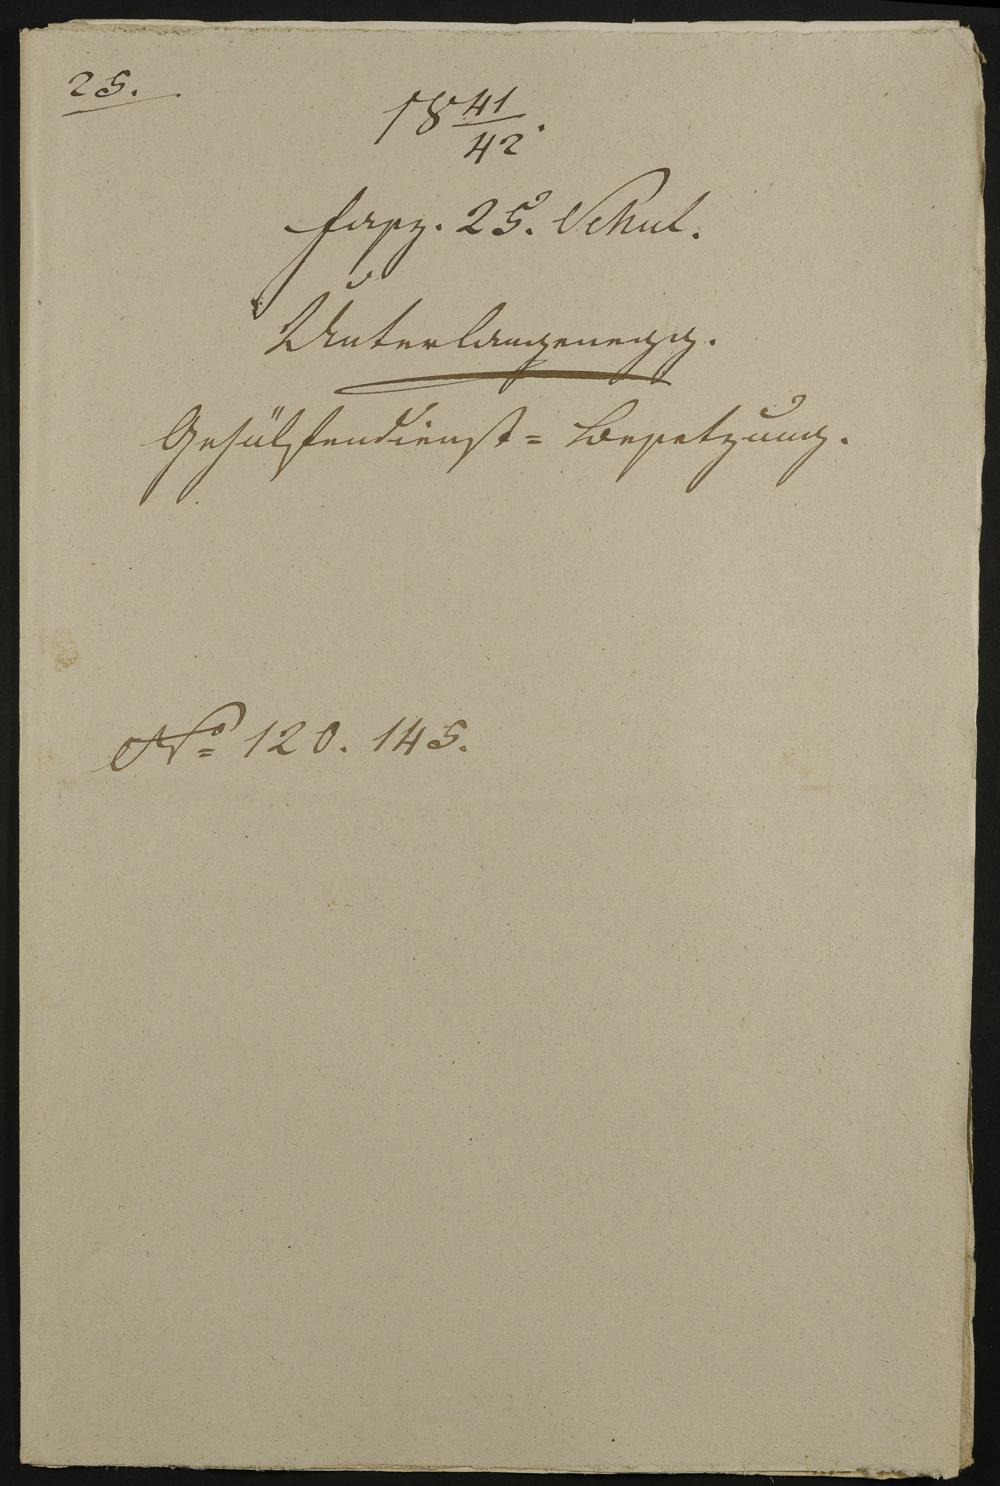 25.
18 41/42.
Fasz. 25. Schul.
Unterlangenegg.
Gehülfendienst = Besetzung.
No 120. 145.